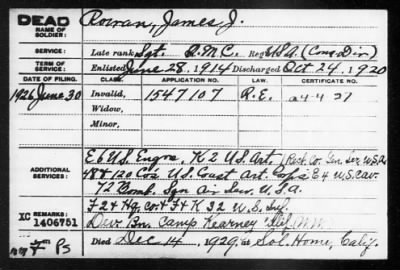 DEAD
NAME OF SOLDIER:
Rowan, James J.
SERVICE:
Late rank Sgt. Q.M.C. Reg U.S.A. (Cons. Div.)
TERM OF SERVICE:
Enlisted June 28, 1914 Discharged Oct 24, 1920
DATE OF FILING. CLASS. APPLICATION NO. LAW. CERTIFICATE NO.
1926 June 30 Invalid, 1547107 R.E. a-4-4-27
Widow,
Minor,
ADDITIONAL SERVICES:
E 6 U.S. Engrs, K 2 U.S. Art, Rect. Co. Gen. Ser. U.S.A.
48 & 120 Co's U.S. Coast Art. Corps E 4 U.S. Cav.
72 Bomb. Sqn Air Serv. U.S.A.
F 2 & Hq. Co. & F & K 32 U.S. Inf.
XC 1406751
REMARKS:
Div. Bn. Camp Kearney
Died Dec 14, 1929, at Sol. Home, Calif.